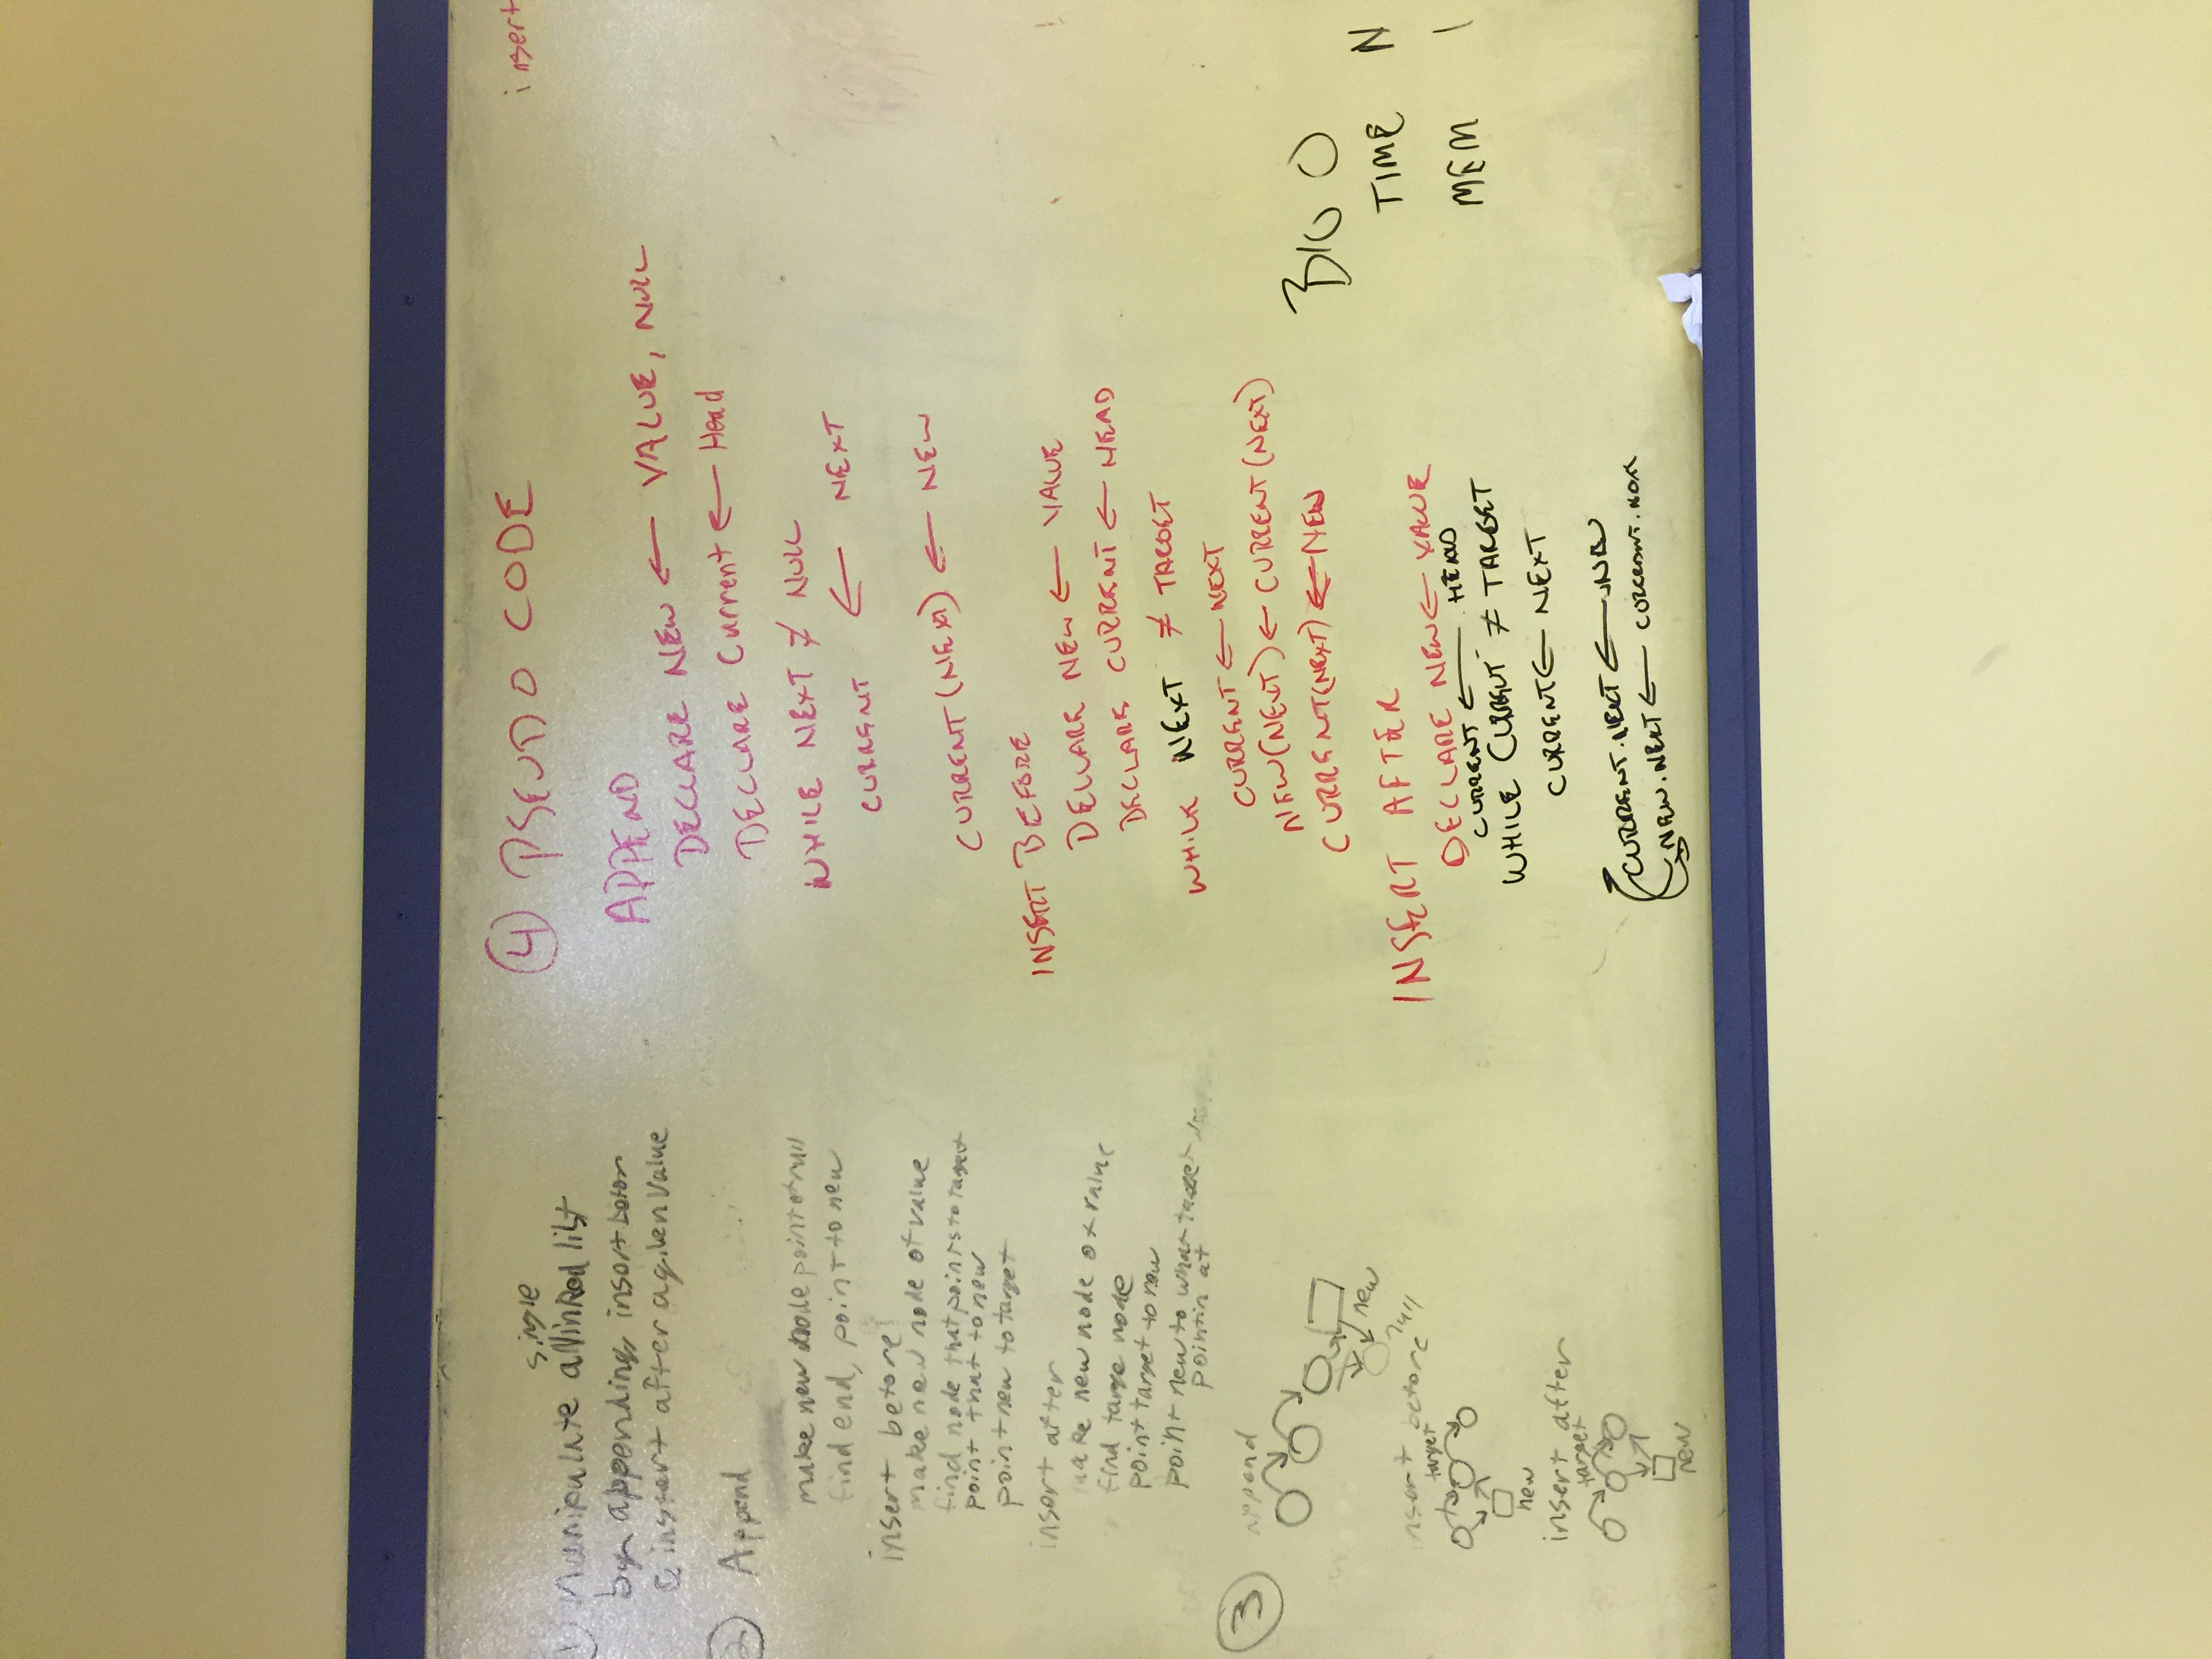 single
① Manipulate a linked list
by appending, insert before
& instert after a given value
② Append
make new node point at null
find end, point to new
insert before
make new node of value
find node that points to target
point that to new
point new to target
insert after
make new node of value
find targe node
point target to new
point new to what target
pointin at
③ append
new
null
insert before
target
new
insert after
target
new
④ PSEUDO CODE
APPEND
DECLARE NEW ← VALUE, NULL
DECLARE Current ← Head
WHILE NEXT ≠ NULL
CURRENT ← NEXT
CURRENT (NEXT) ← NEW
INSERT BEFORE
DECLARE NEW ← VALUE
DECLARE CURRENT ← HEAD
WHILE NEXT ≠ TARGET
CURRENT ← NEXT
NEW(NEXT) ← CURRENT (NEXT)
CURRENT(NEXT) ← NEW
INSERT AFTER
DECLARE NEW ← VALUE
CURRENT ← HEAD
WHILE CURRENT ≠ TARGET
CURRENT ← NEXT
CURRENT.NEXT ← NEW
NEW.NEXT ← CURRENT.NEXT
insert
BIG O
TIME N
MEM 1